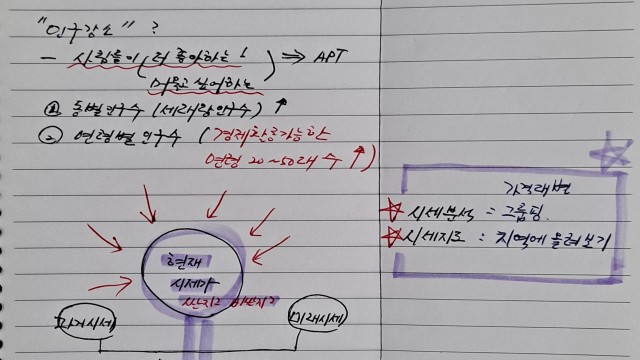 "인구감소" ?
- 사람들이 더 좋아하는! ⇒ APT
(머물고 싶어하는)
① 동별인구수 (세대당인구수) ↑
② 연령별 인구수 (경제활동가능한
연령 20~50대 수 ↑)
가격대별
☆ 시세분석 = 그룹핑.
☆ 시세지도 : 지역에 올려보기
현재
시세가
싼지? 비싼지?
과거시세
미래시세